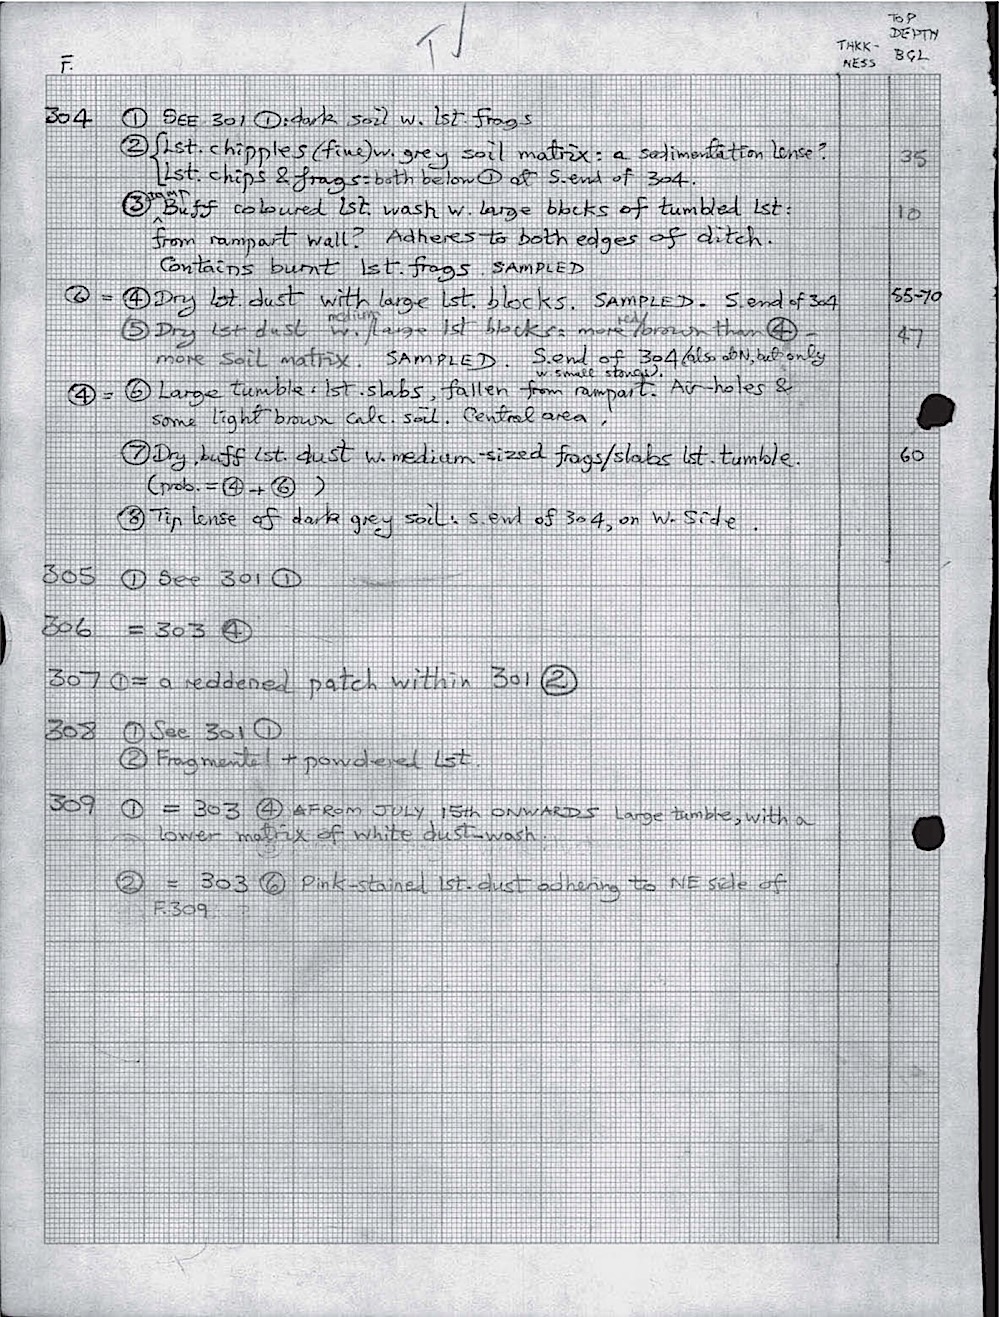 TOP
DEPTH
THKK-
NESS
BGL
F.
304 ① SEE 301 ①: dark soil w. lst. frags
② {Lst. chipples (fine) w. grey soil matrix: a sedimentation lense? 35
{Lst. chips & frags: both below ① at S.end of 304.
DAMP
③ Buff coloured lst. wash w. large blocks of tumbled lst: 10
from rampart wall? Adheres to both edges of ditch.
Contains burnt lst. frags. SAMPLED
⑥ = ④ Dry lst. dust with large lst. blocks. SAMPLED. S.end of 304 55-70
medium red
⑤ Dry lst dust w. / large lst blocks: more / brown than ④ - 47
more soil matrix. SAMPLED. S.end of 304 (also at N, but only
w. small stones).
④ = ⑥ Large tumble: lst. slabs, fallen from rampart. Air-holes &
some light brown calc. soil. Central area.
⑦ Dry, buff lst. dust w. medium-sized frags/slabs lst. tumble. 60
(prob. = ④ + ⑥ )
⑧ Tip lense of dark grey soil: s.end of 304, on W. Side.
305 ① See 301 ①
306 = 303 ④
307 ① = a reddened patch within 301 ②
308 ① See 301 ①
② Fragmented + powdered Lst.
309 ① = 303 ④ FROM JULY 15th ONWARDS Large tumble, with a
lower matrix of white dust-wash.
② = 303 ⑥ Pink-stained lst. dust adhering to NE side of
F.309